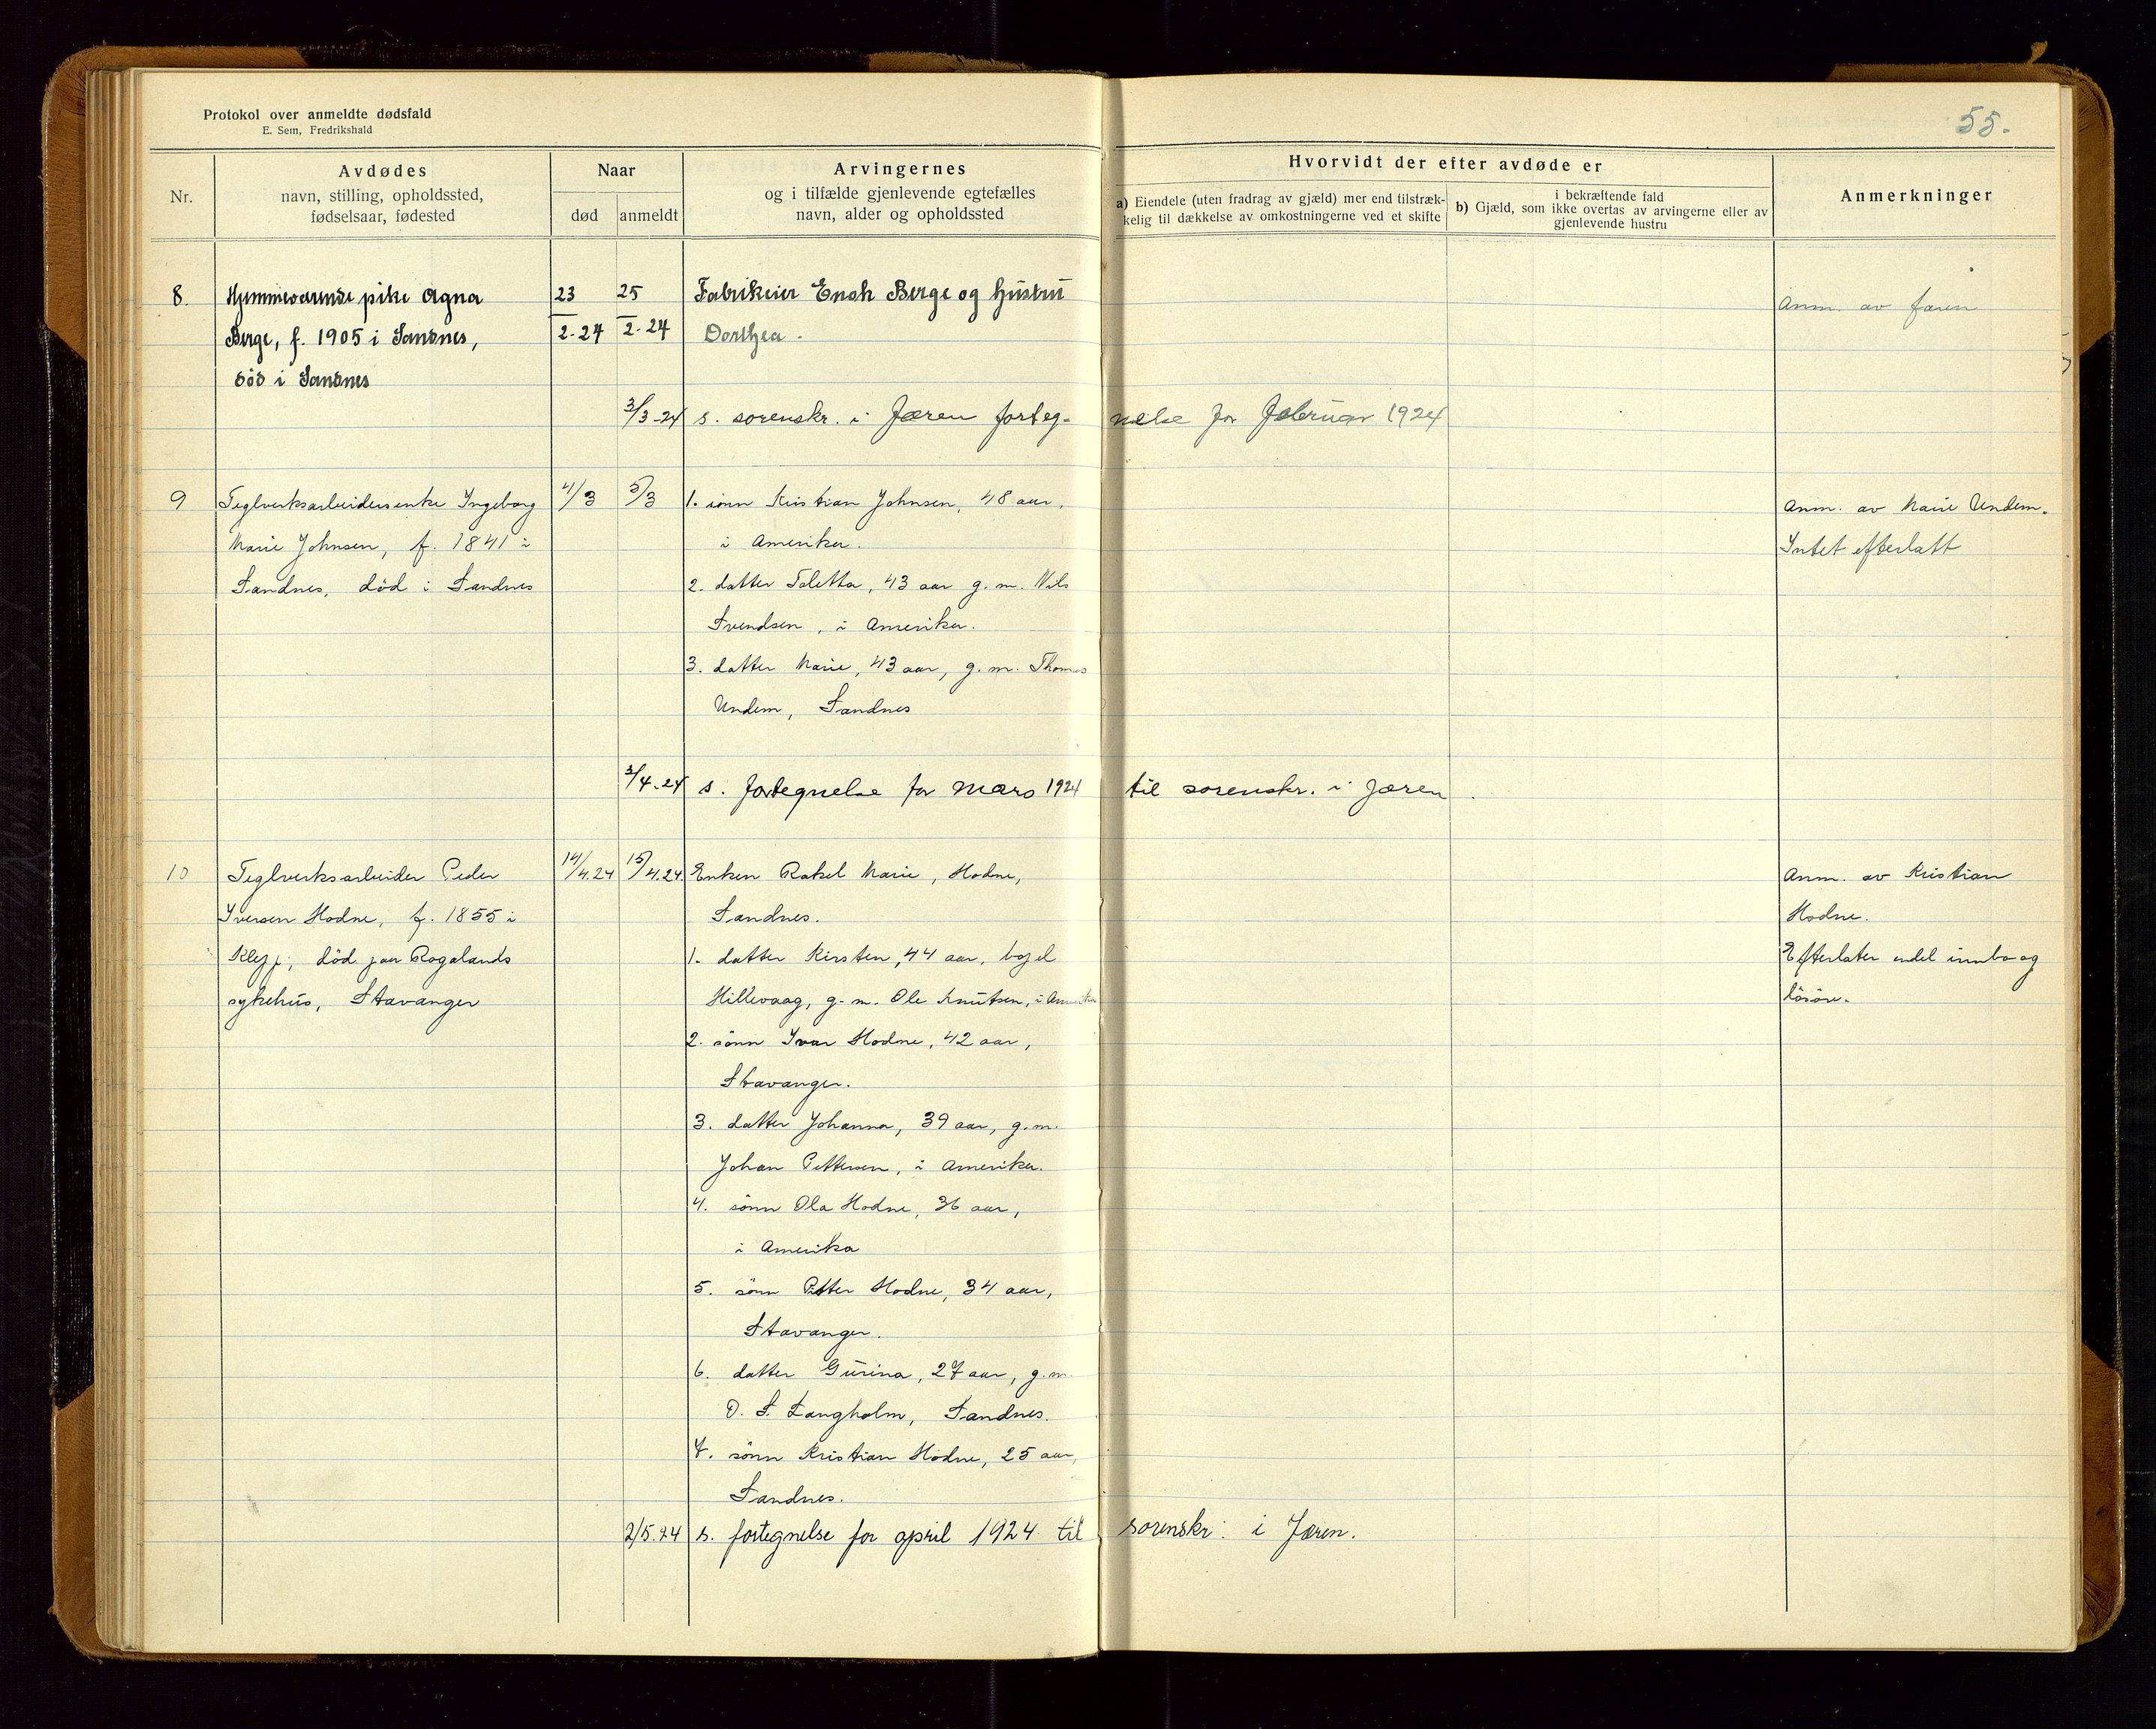 Protokol over anmeldte dødsfald
E. Sem, Fredrikshald
55.
Nr.
Avdødes
navn, stilling, opholdssted,
fødselsaar, fødested
Naar
død anmeldt
Arvingernes
og i tilfælde gjenlevende egtefælles
navn, alder og opholdssted
Hvorvidt der efter avdøde er
a) Eiendele (uten fradrag av gjæld) mer end tilstræk-
kelig til dækkelse av omkostningerne ved et skifte
i bekræftende fald
b) Gjæld, som ikke overtas av arvingerne eller av
gjenlevende hustru
Anmerkninger
8. Hjemmeværende pike Agna 23 25 Fabrikeier Enok Berge og hustru Anm. av faren
Berge, f. 1905 i Sandnes, 2-24 2-24 Dorthea.
død i Sandnes
3/3-24 s. sorenskr. i Jæren forteg- nelse for februar 1924
9 Teglverksarbeidersenke Ingeborg 4/3 5/3 1. sönn Kristian Johnsen, 48 aar, Anm. av Marie Undem.
Marie Johnsen, f. 1841 i i Amerika. Intet efterlatt
Sandnes, död i Sandnes 2. datter Toletta, 43 aar g. m. Nils
Svendsen, i Amerika.
3. datter Marie, 43 aar, g. m. Thomas
Undem, Sandnes
3/4-24 s. fortegnelse for mars 1924 til sorenskr. i Jæren
10 Teglverksarbeider Peder 14/4.24 15/4.24. Enken Rakel Marie, Hodne, Anm. av Kristian
Iversen Hodne, f. 1855 i Sandnes. Hodne.
Klepp, död paa Rogalands 1. datter Kirsten, 44 aar, bopæl Efterlater endel innbo og
sykehus, Stavanger Hillevaag, g. m. Ole Knutsen, i Amerika lösöre.
2. sönn Ivar Hodne, 42 aar,
Stavanger.
3. datter Johanna, 39 aar, g. m.
Johan Pettersen, i Amerika.
4. sönn Ola Hodne, 36 aar,
i Amerika
5. sönn Petter Hodne, 34 aar,
Stavanger.
6. datter Gurina, 27 aar, g. m.
O. S. Langholm, Sandnes.
7. sönn Kristian Hodne, 25 aar,
Sandnes.
2/5.24 s. fortegnelse for april 1924 til sorenskr. i Jæren.